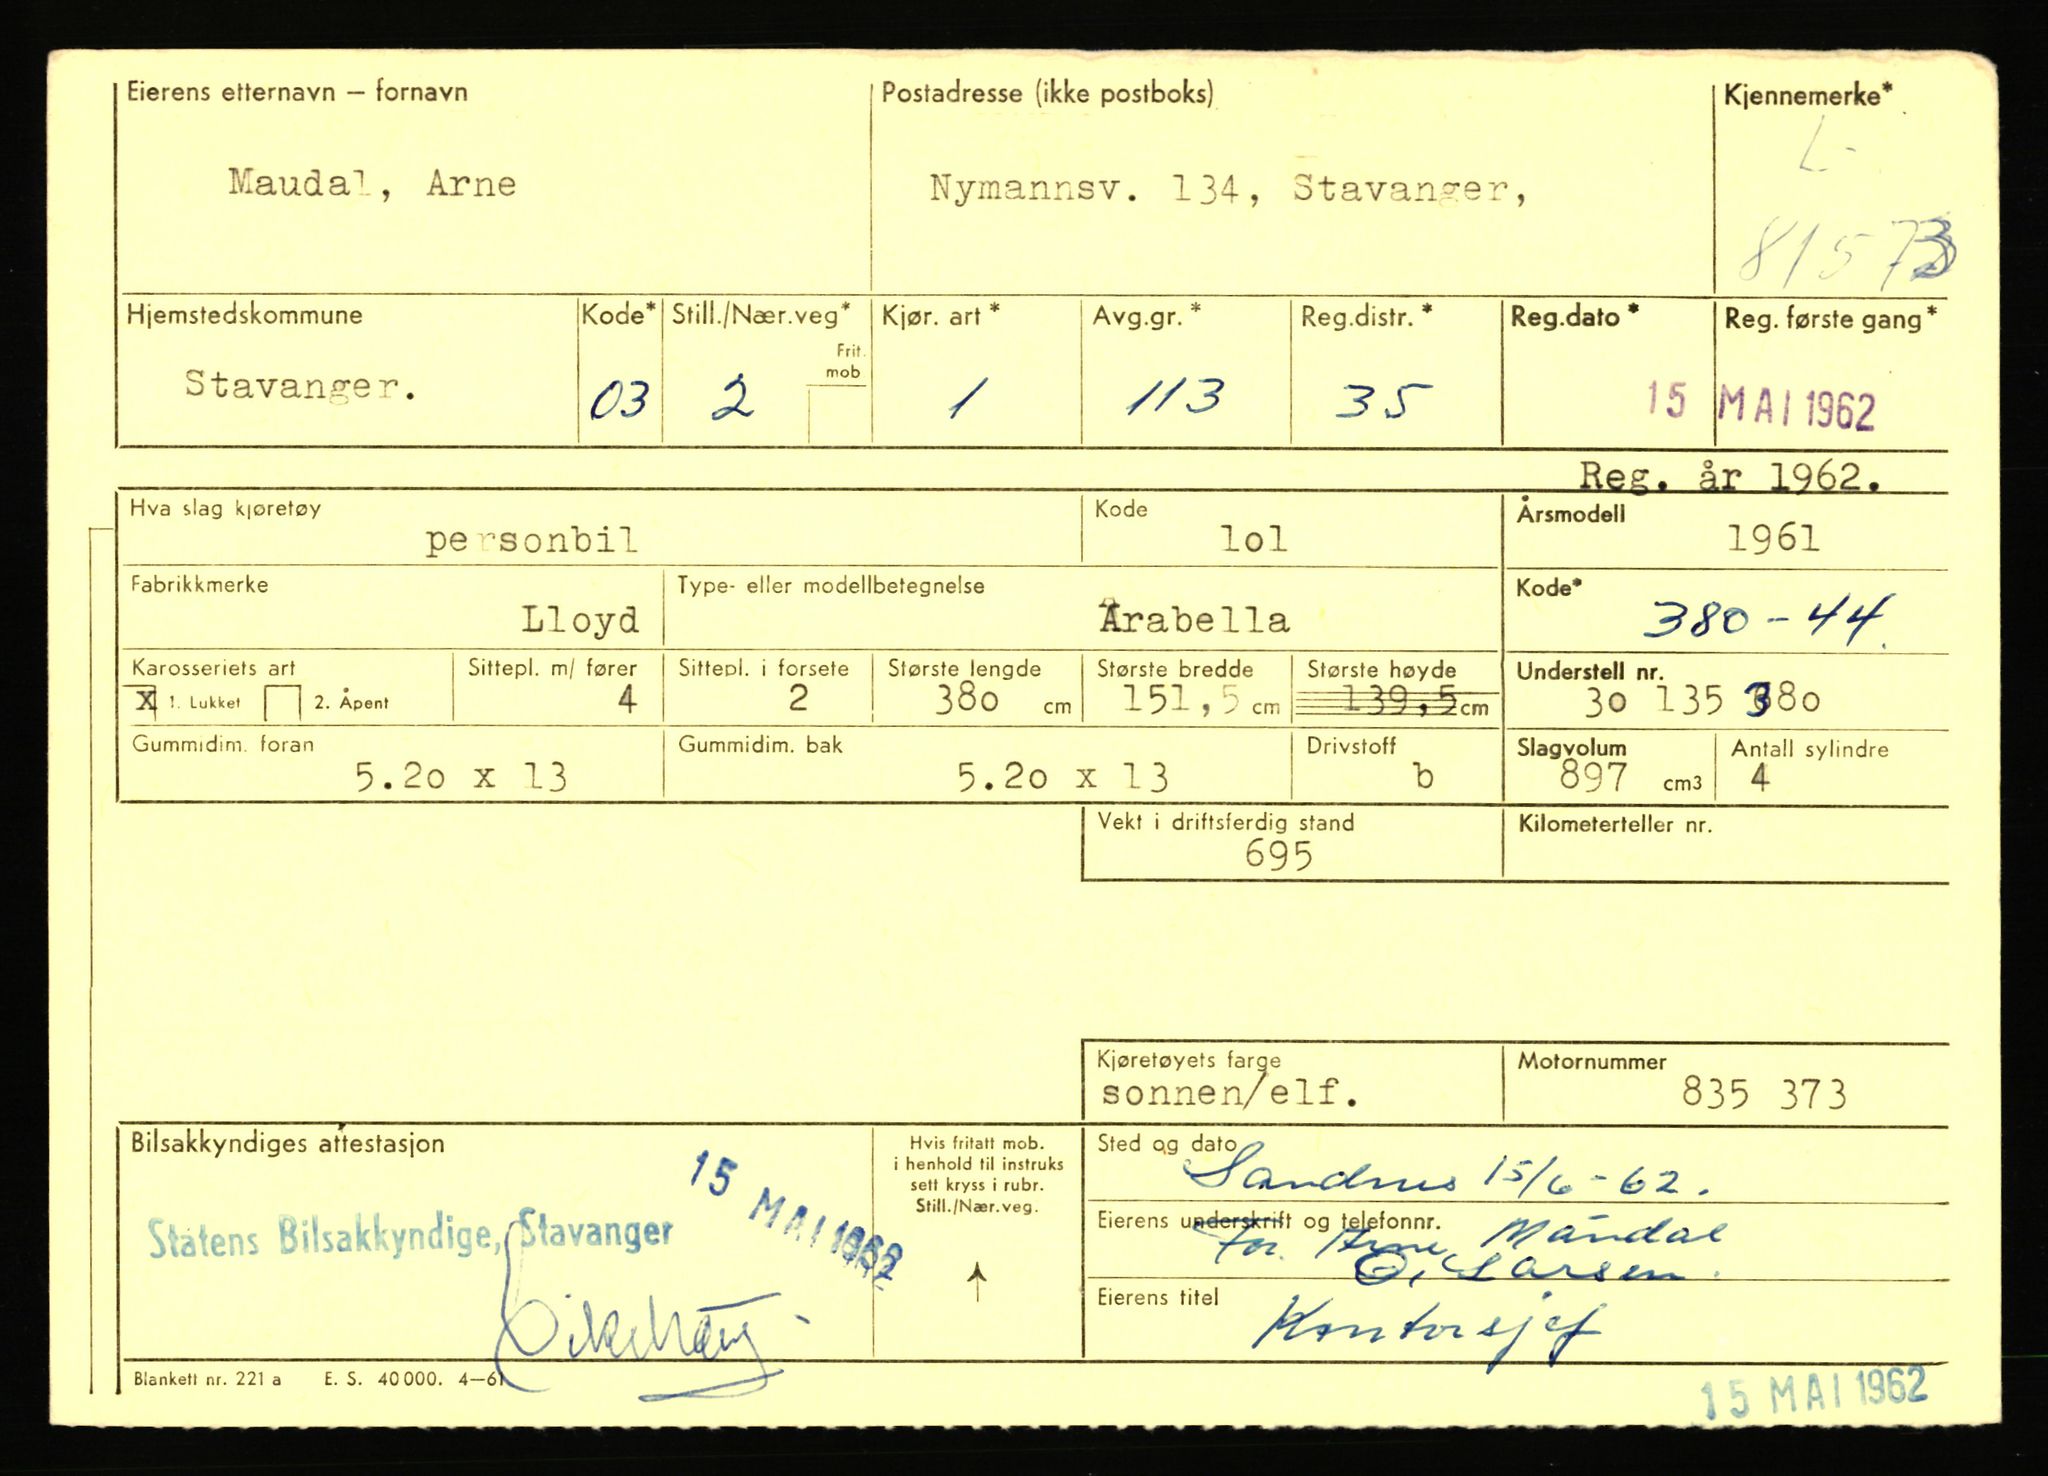 Eierens etternavn – fornavn Postadresse (ikke postboks) Kjennemerke*
L-
Maudal, Arne Nymannsv. 134, Stavanger,
8157
Hjemstedskommune Kode* Still./Nær.veg* Kjør. art* Avg.gr.* Reg.distr.* Reg.dato* Reg. første gang*
Frit. mob
Stavanger. 03 2 1 113 35 15 MAI 1962
Reg. år 1962.
Hva slag kjøretøy Kode Årsmodell
personbil lol 1961
Fabrikkmerke Type- eller modellbetegnelse Kode*
Lloyd Arabella 380-44.
Karosseriets art Sittepl. m/ fører Sittepl. i forsete Største lengde Største bredde Største høyde Understell nr.
x 1. Lukket 2. Åpent 4 2 38o cm 151,5 cm 139,5 cm 3o 135 38o
Gummidim. foran Gummidim. bak Drivstoff Slagvolum Antall sylindre
5.2o x 13 5.2o x 13 b 897 cm3 4
Vekt i driftsferdig stand Kilometerteller nr.
695
Kjøretøyets farge Motornummer
sonnen/elf. 835 373
Bilsakkyndiges attestasjon
15 MAI 1962
Statens Bilsakkyndige, Stavanger
Hvis fritatt mob.
i henhold til instruks
sett kryss i rubr.
Still./Nær.veg.
Sted og dato
Sandnes 15/6-62.
Eierens underskrift og telefonnr.
for Arne Maudal
O. Larsen.
Eierens titel
Kontorsjef
Blankett nr. 221 a E. S. 40 000. 4–61
15 MAI 1962